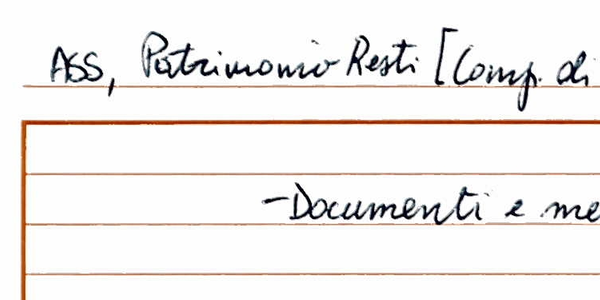 ASS, Patrimonio Resti [Comp. di
- Documenti e me